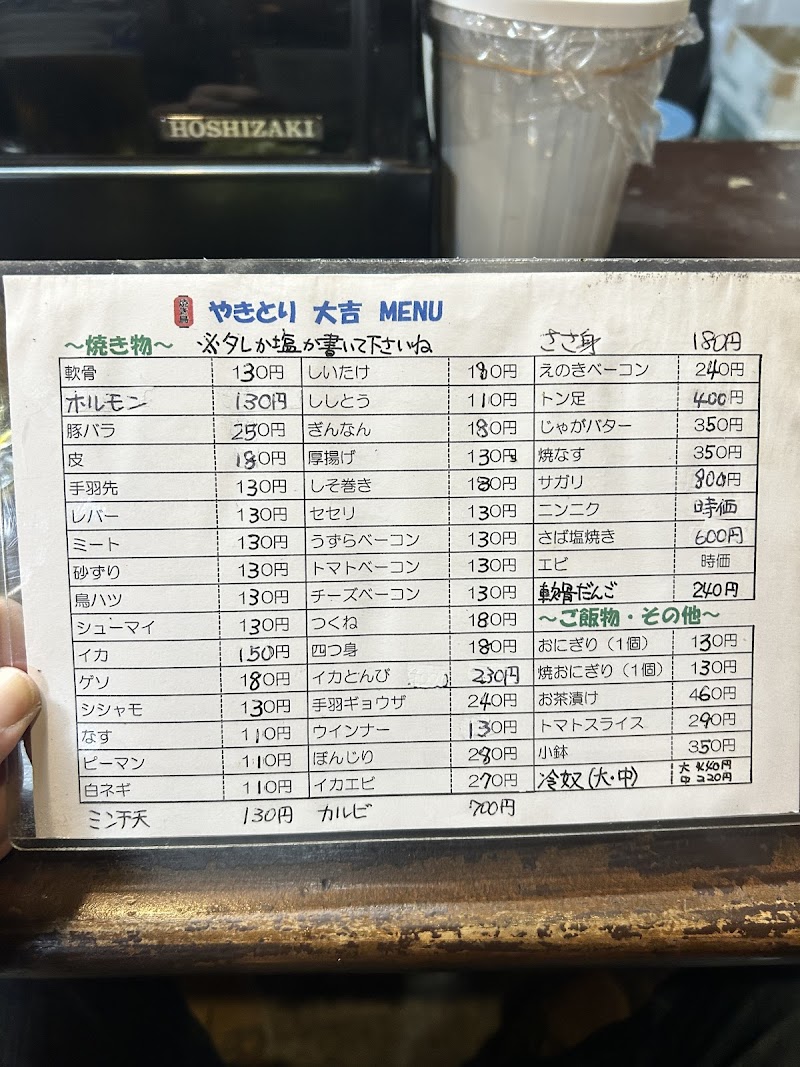 HOSHIZAKI
やきとり 大吉 MENU
～焼き物～ ※タレか塩か書いて下さいね
軟骨 130円
ホルモン 130円
豚バラ 250円
皮 180円
手羽先 130円
レバー 130円
ミート 130円
砂ずり 130円
鳥ハツ 130円
シューマイ 130円
イカ 150円
ゲソ 180円
シシャモ 130円
なす 110円
ピーマン 110円
白ネギ 110円
ミンチ天 130円
しいたけ 180円
ししとう 110円
ぎんなん 180円
厚揚げ 130円
しそ巻き 180円
セセリ 130円
うずらベーコン 130円
トマトベーコン 130円
チーズベーコン 130円
つくね 180円
四つ身 180円
イカとんび 230円
手羽ギョウザ 240円
ウインナー 130円
ぼんじり 280円
イカエビ 270円
カルビ 700円
ささ身 180円
えのきベーコン 240円
トン足 400円
じゃがバター 350円
焼なす 350円
サガリ 800円
ニンニク 時価
さば塩焼き 600円
エビ 時価
軟骨だんご 240円
～ご飯物・その他～
おにぎり（1個） 130円
焼おにぎり（1個） 130円
お茶漬け 460円
トマトスライス 290円
小鉢 350円
冷奴(大・中) 大 440円
中 220円